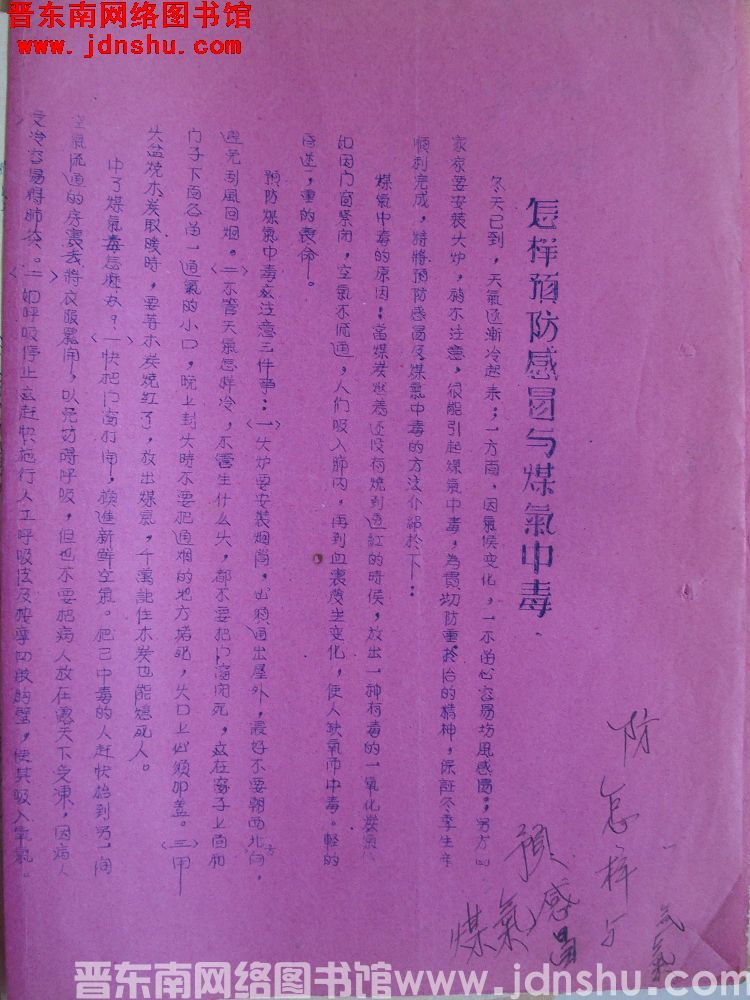 晋东南网络图书馆
www.jdnshu.com
怎样预防感冒与煤氣中毒
冬天已到，天氣逐漸冷起来；一方面，因氣候变化，一不当心容易伤風感冒；另方面
家家要安装火炉，稍不注意，很能引起煤氣中毒，為貫切防重於治的精神，保証冬季生产
順利完成，特將預防感冒及煤氣中毒的方法介紹於下：
煤氣中毒的原因：当煤炭燃着还没有烧到透紅的時候，放出一种有毒的一氧化炭氣
如因门窗紧闭，空氣不流通，人们吸入肺内，再到血裏發生变化，使人缺氧而中毒。輕的
昏迷，重的丧命。
預防煤氣中毒应注意三件事：（一）火炉要安装烟筒，必須通出屋外，最好不要朝西北方向，
避免到風回烟。（二）不管天氣怎样冷，不管生什么火，都不要把门窗闭死，应在窗子上面和
门子下面各留一通氣的小口，晚上封火時不要把通烟的地方堵死，火口上必須叩盖。（三）用
火盆烧木炭取暖時，要等木炭烧红了，放出煤氣，千萬記住木炭也能燻死人。
中了煤氣毒怎麽办？（一）快把门窗打開，換進新鮮空氣。把已中毒的人赶快抬到另一間
空氣流通的房裏去將衣服鬆開，以免妨碍呼吸，但也不要把病人放在露天下受凍，因病人
受冷容易得肺炎。（二）如呼吸停止应赶快施行人工呼吸法及按摩四肢胸壁，使其吸入氧氣。
防
怎样与
預感冒
煤氣
氣
晋东南网络图书馆 www.jdnshu.com